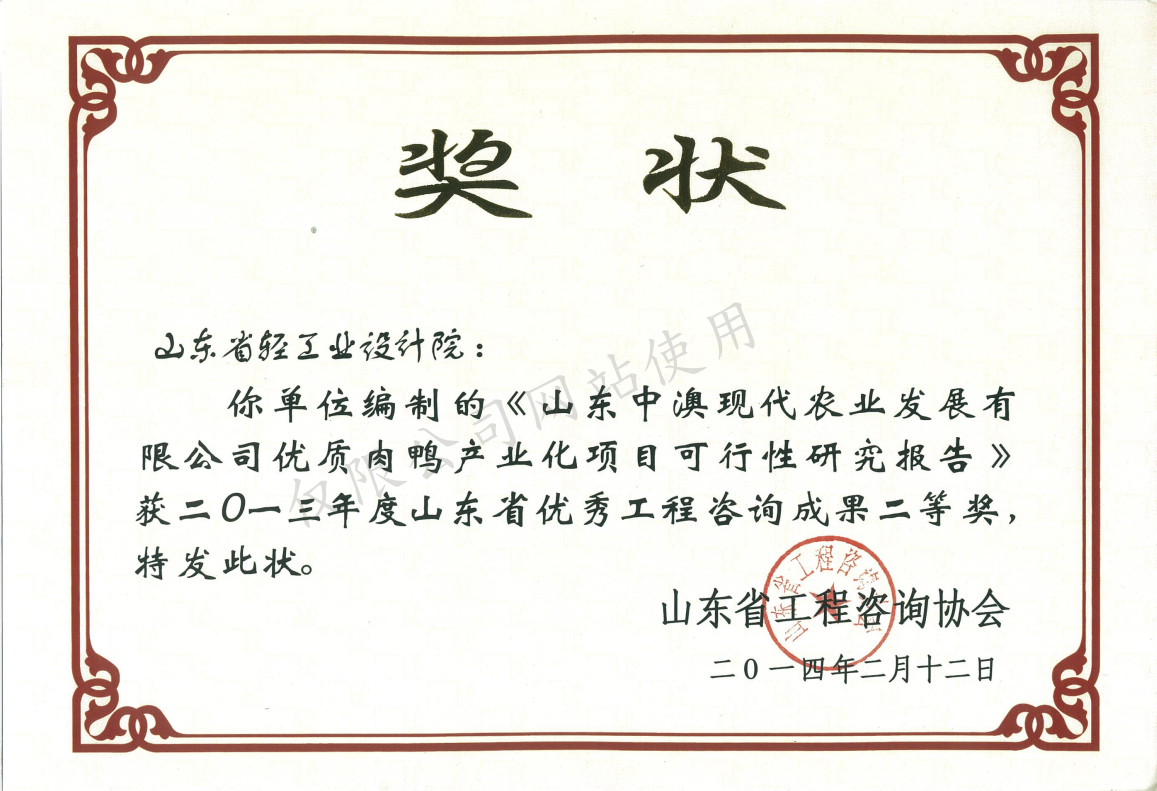 奖 状
山东省轻工业设计院：
你单位编制的《山东中澳现代农业发展有
限公司优质肉鸭产业化项目可行性研究报告》
获二〇一三年度山东省优秀工程咨询成果二等奖，
特发此状。
山东省工程咨询协会
二〇一四年二月十二日
仅限公司网站使用
山东省工程咨询协会